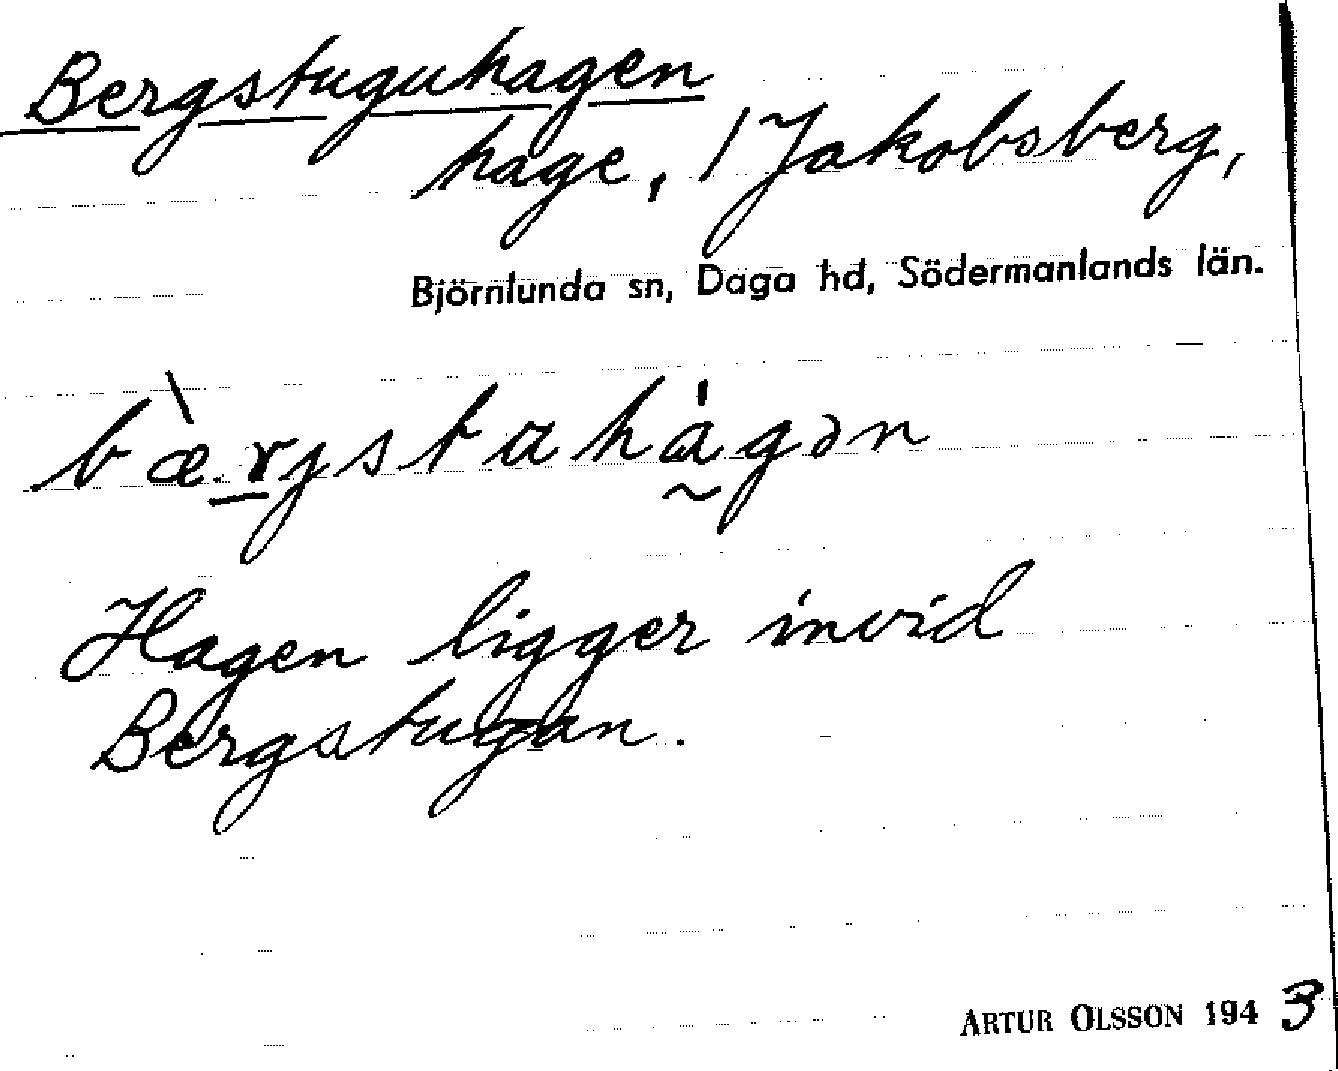 Bergstuguhagen
hage, / Jakobsberg,
Björnlunda sn, Daga hd, Södermanlands län.
bæ̀rjstuhágən
Hagen ligger invid
Bergstugan.
ARTUR OLSSON 1943